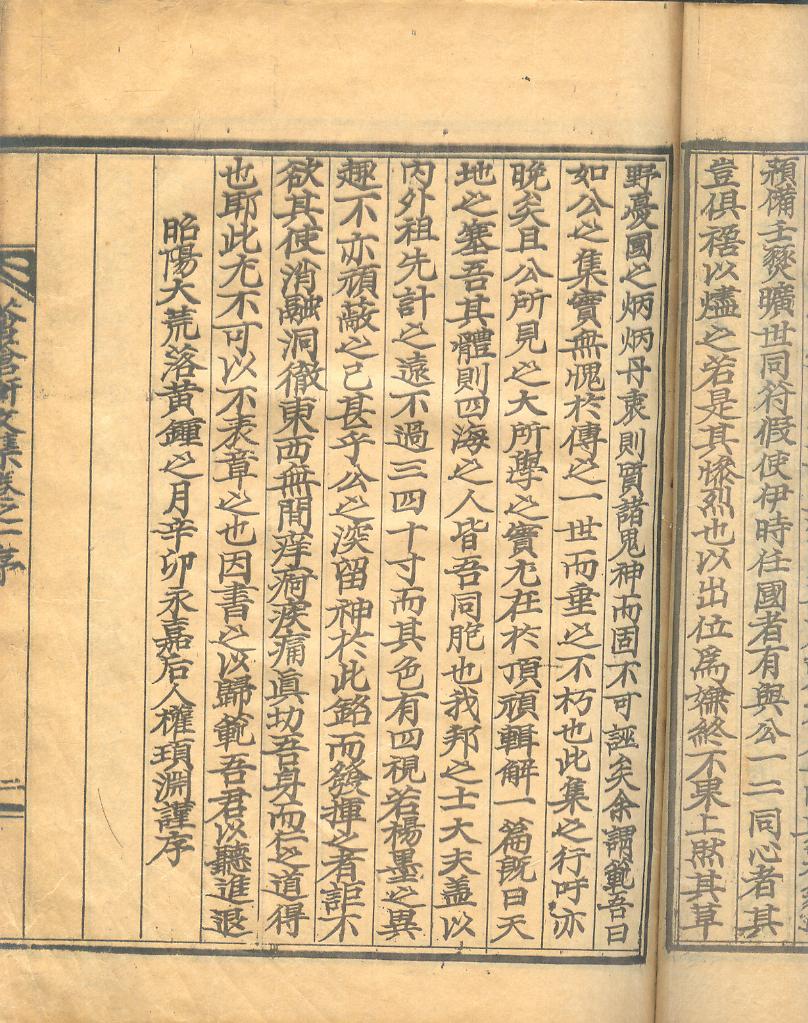 頹備壬燹曠世同符假使伊時任國者有與公一二同心者其
豈俱梧以燼之若是其慘烈也以出位爲嫌終不果上然其草
野憂國之炳炳丹衷則質諸鬼神而固不可誣矣余謂範吾曰
如公之集實無愧於傳之一世而垂之不朽也此集之行吁亦
晩矣且公所見之大所學之實尤在於頂頑輯解一篇旣曰天
地之塞吾其體則四海之人皆吾同胞也我邦之士大夫盖以
內外祖先計之遠不過三四十寸而其色有四視若楊墨之異
趣不亦頑蔽之已甚乎公之深留神於此銘而發揮之者詎不
欲其使消融洞徹東西無間痒痾疾痛眞切吾身而仁之道得
也耶此尤不可以不表章之也因書之以歸範吾君以聽進退
昭陽大荒落黃鍾之月辛卯永嘉后人權頊淵謹序
文集卷之一 序
二